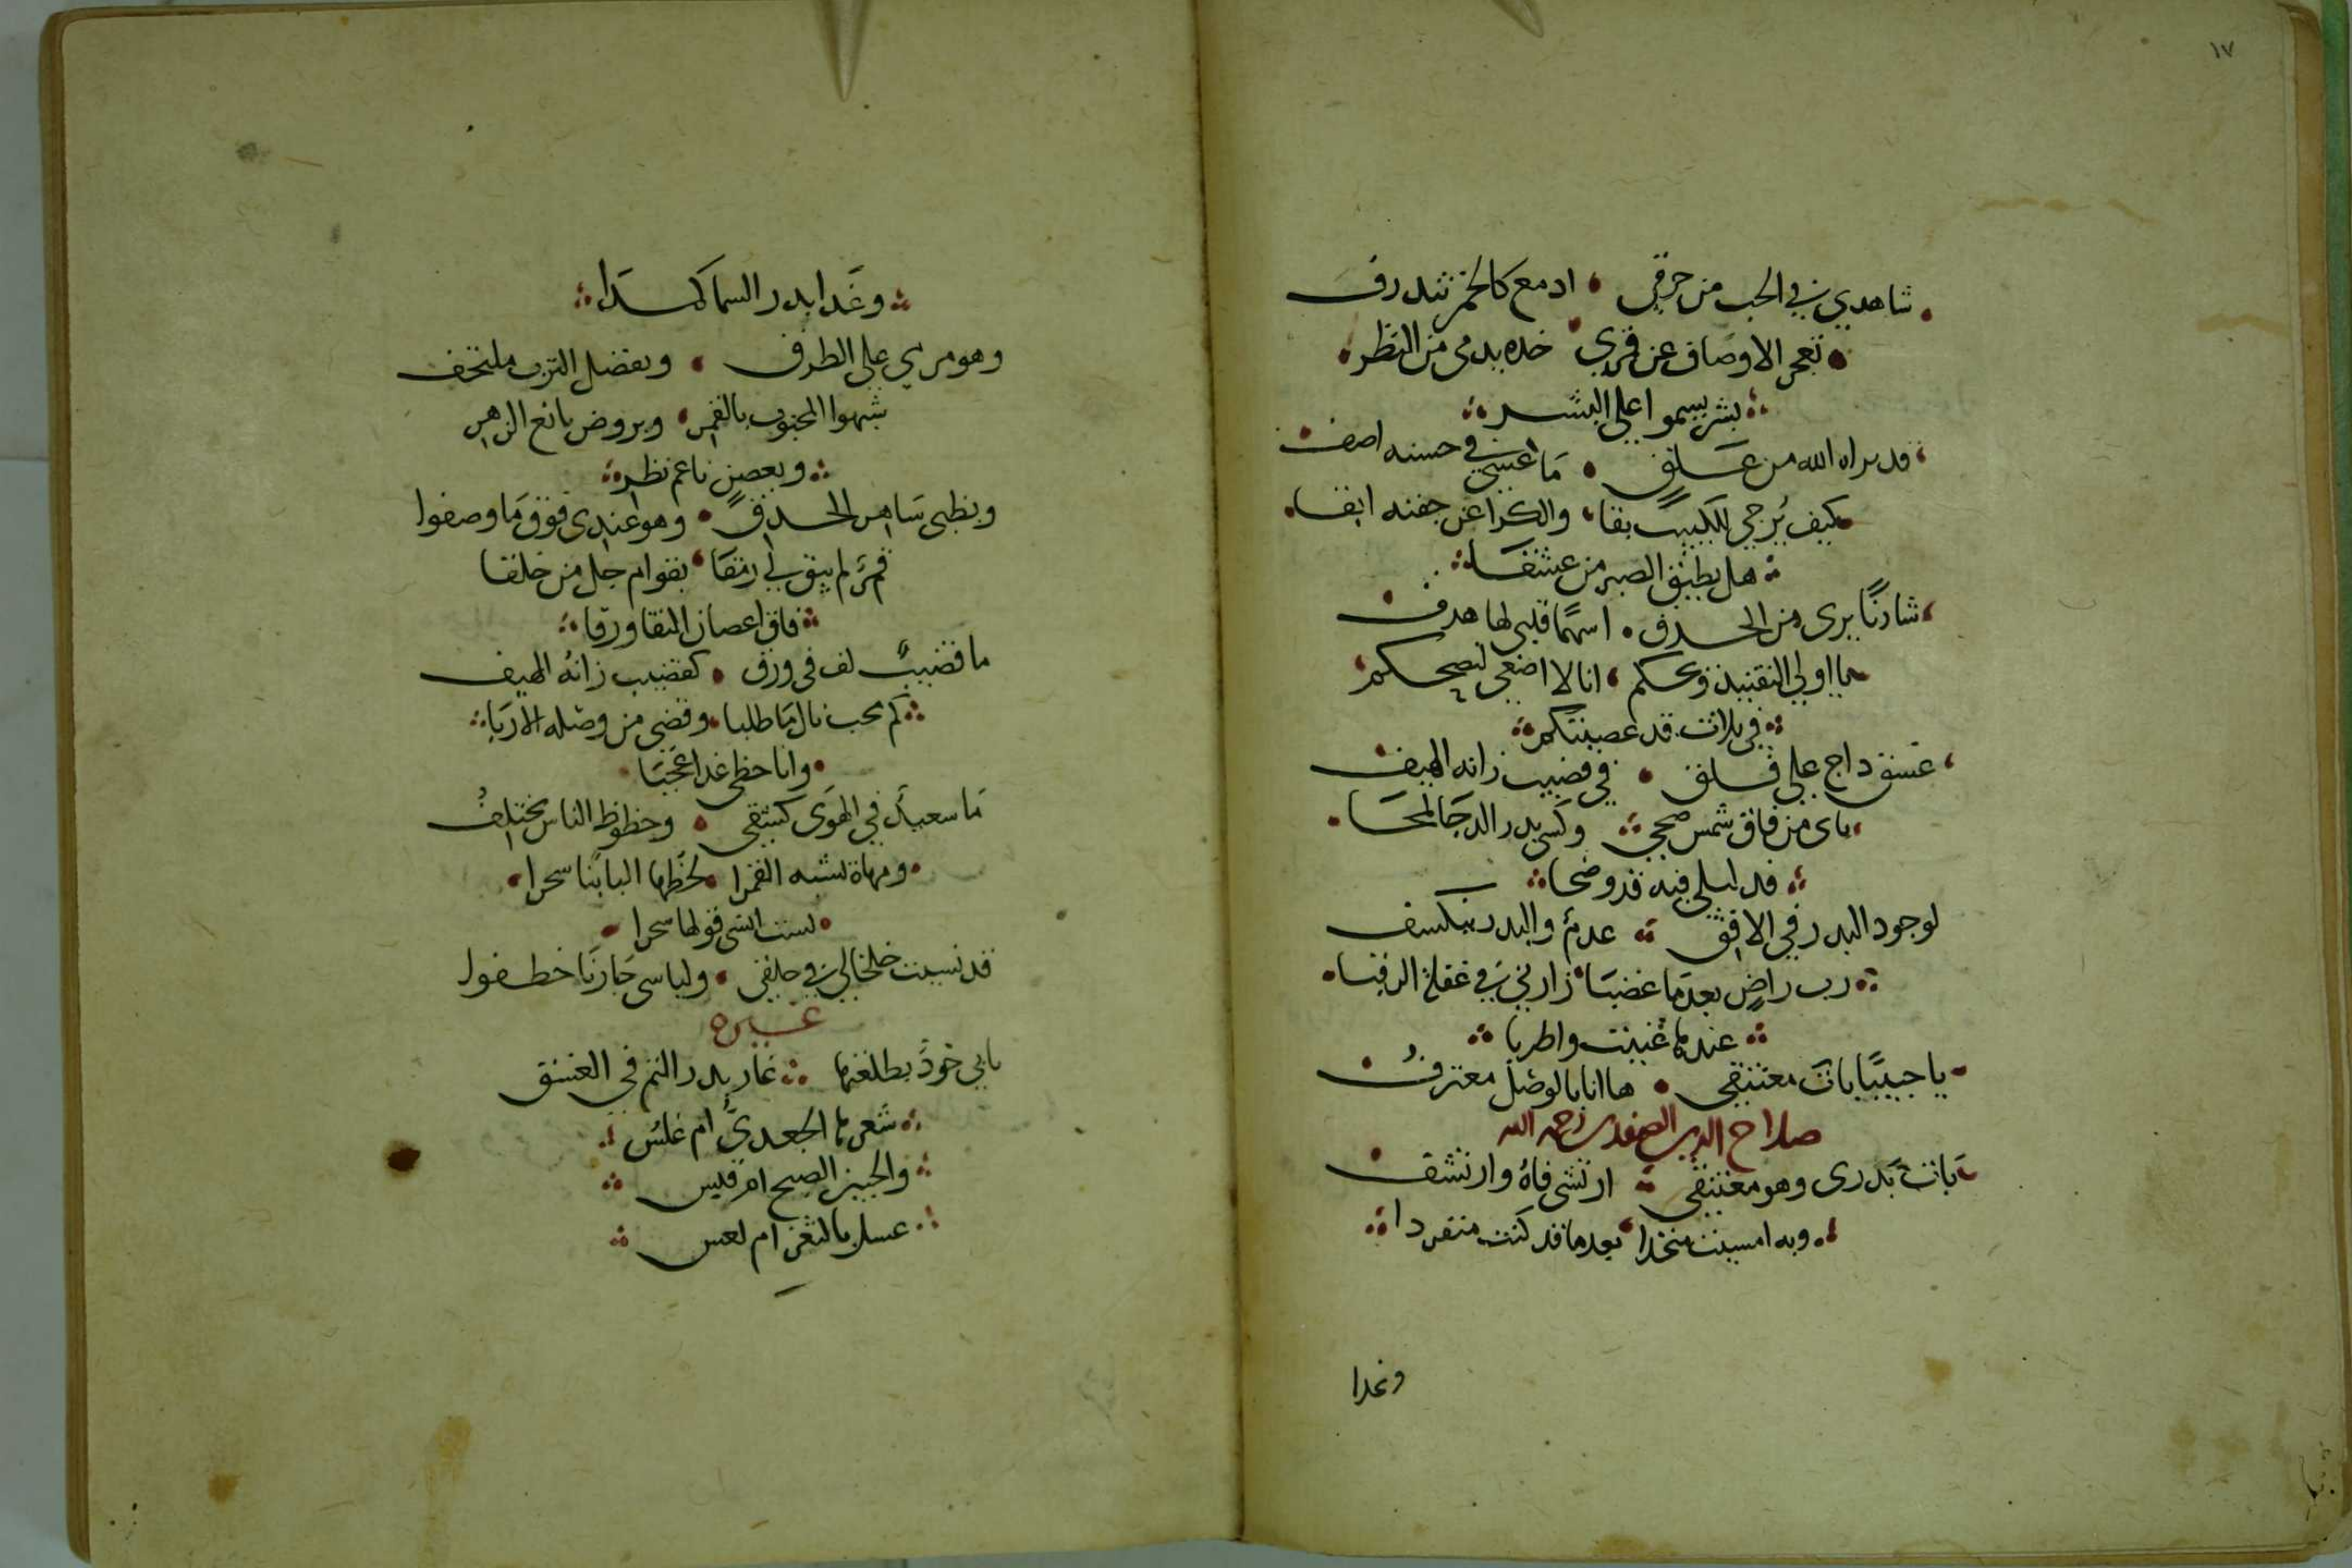 ١٧
شاهدي في الحب من حرقي ادمع كالخمر تنذرف
تعجز الاوصاف عن قمري خده يدمى من النظر
بشر يسموا على البشر
قد براه الله من علق ما عسى في حسنه اصف
كيف يرجى للكييب بقا والكرا عن جفنه ابقا
هل يطيق الصبر من عشقا
شادنا يرى من الحدق اسهما قلبى لها هدف
يا اولى التفنيد ويحكم انا لا اصغى لنصحكم
في بلات قد عصيتكم
غسق داج على فلق في قضيب زانه الهيف
باى من فاق شمس ضحى وكسى بدر الدجا لمحا
قد ليلى فيه قد وضحا
لوجود البدر في الافق عدم والبدر ينكسف
رب راض بعد ما غضبا زارني في غفلة الرقبا
عندها غنيت واطربا
يا حبيبا بات معتنقى ها انا بالوصل معترف
صلاح الدين الصفدى رحمه الله
بات بدرى وهو معتنقى ارتشى فاه وارتشف
وبه امسيت متحدا بعد ما قد كنت منفردا
وغدا
وغدا بدر السما كمدا
وهو مرمي على الطرف وبفضل الترب ملتحف
شبهوا المحبوب بالقمر وبروض يانع الزهر
وبغصن ناعم نظر
وبظبى ساهر الحدق وهو عندى فوق ما وصفوا
قمر لم يبق لي رمقا بقوام جل من خلقا
فاق اغصان النقا ورقا
ما قضيب لف في ورق كقضيب زانه الهيف
كم محب نال ما طلبا وقضى من وصله الاربا
وانا حظي غدا عجبا
ما سعيد في الهوى كشقي وحظوظ الناس تختلف
ومهاة تشبه القمرا لحظها البابنا سحرا
لست انسى قولها سحرا
قد نسيت خلخالي في حلقى ولباسى جارنا خطفوا
غيره
بابي خود بطلعتها غار بدر التم في الغسق
شعرها الجعدي ام غلس
والجبين الصبح ام قبس
عسل بالثغر ام لعس